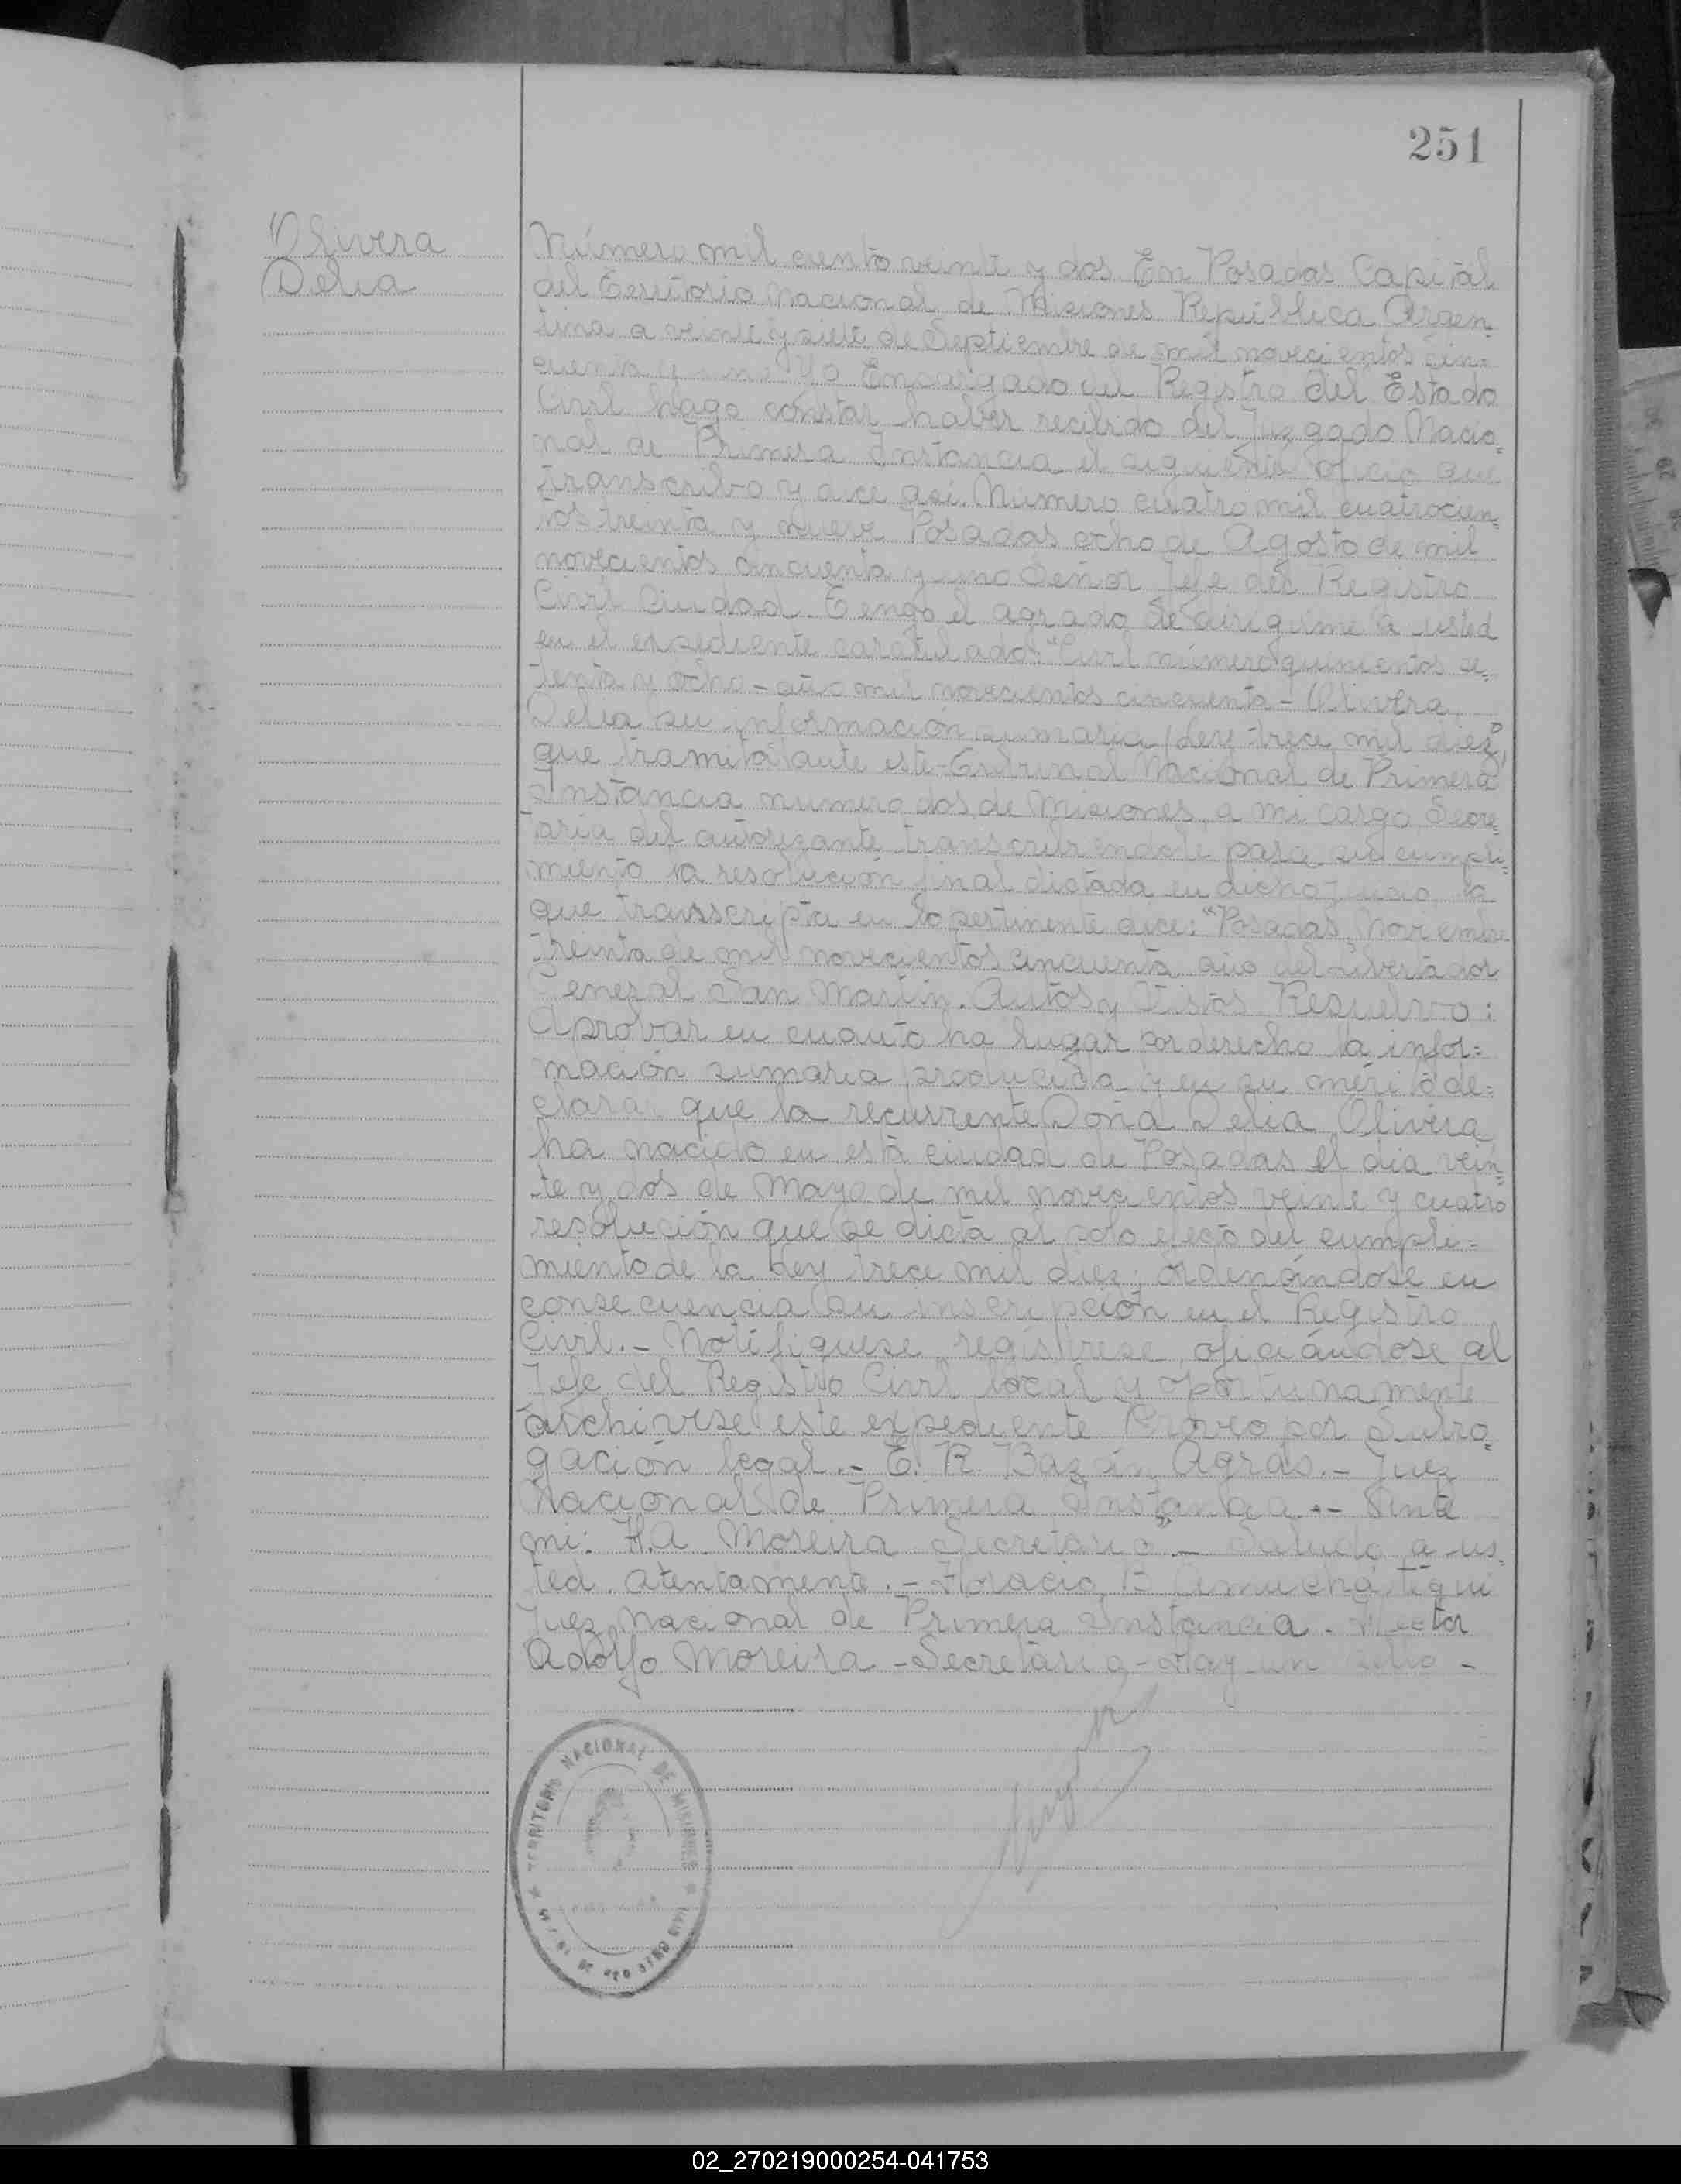 251
Olivera
Delia
Número mil ciento veinte y dos En Posadas Capital
del Territorio Nacional de Misiones República Argen=
tina a veinte y siete de Septiembre de mil novecientos cin=
cuenta y uno Yo Encargado del Registro del Estado
Civil hago constar haber recibido del Juzgado Nacio=
nal de Primera Instancia el siguiente oficio que
transcribo y dice así. Número cuatro mil cuatrocien=
tos treinta y nueve Posadas ocho de Agosto de mil
novecientos cincuenta y uno Señor Jefe del Registro
Civil Ciudad. Tengo el agrado de dirigirme a usted
en el expediente caratulado: "Civil número quinientos se=
tenta y ocho - año mil novecientos cincuenta - Olivera
Delia su información sumaria (Ley trece mil diez)"
que tramita ante este Tribunal Nacional de Primera
Instancia numero dos, de Misiones, a mi cargo, Secre=
taria del autorizante transcribiendole para su cumpli=
miento la resolución final dictada en dicho juicio, la
que transscripta en lo pertinente dice: "Posadas, Noviembre
treinta de mil novecientos cincuenta año del Libertador
General San Martín. Autos y Vistos Resuelvo:
Aprobar en cuanto ha lugar por derecho la infor=
mación sumaria producida y en su mérito de=
clarar que la recurrente Doña Delia Olivera
ha nacido en esta ciudad de Posadas el día vein=
te y dos de Mayo de mil novecientos veinte y cuatro
resolución que se dicta al solo efecto del cumpli=
miento de la Ley trece mil diez; ordenándose en
consecuencia su inscripción en el Registro
Civil.- Notifiquese registrese, oficiándose al
Jefe del Registro Civil local y oportunamente
archivese este expediente Proveo por Subro=
gación legal.- E. R. Bazán Agrás.- Juez
Nacional de Primera Instancia.- Ante
mi: H.A. Moreira Secretario".- Saludo a us=
ted atentamente.- Horacio B Amuchástegui
Juez Nacional de Primera Instancia. Hector
Adolfo Moreira - Secretario - Hay un sello -
TERRITORIO NACIONAL DE MISIONES
02_270219000254-041753